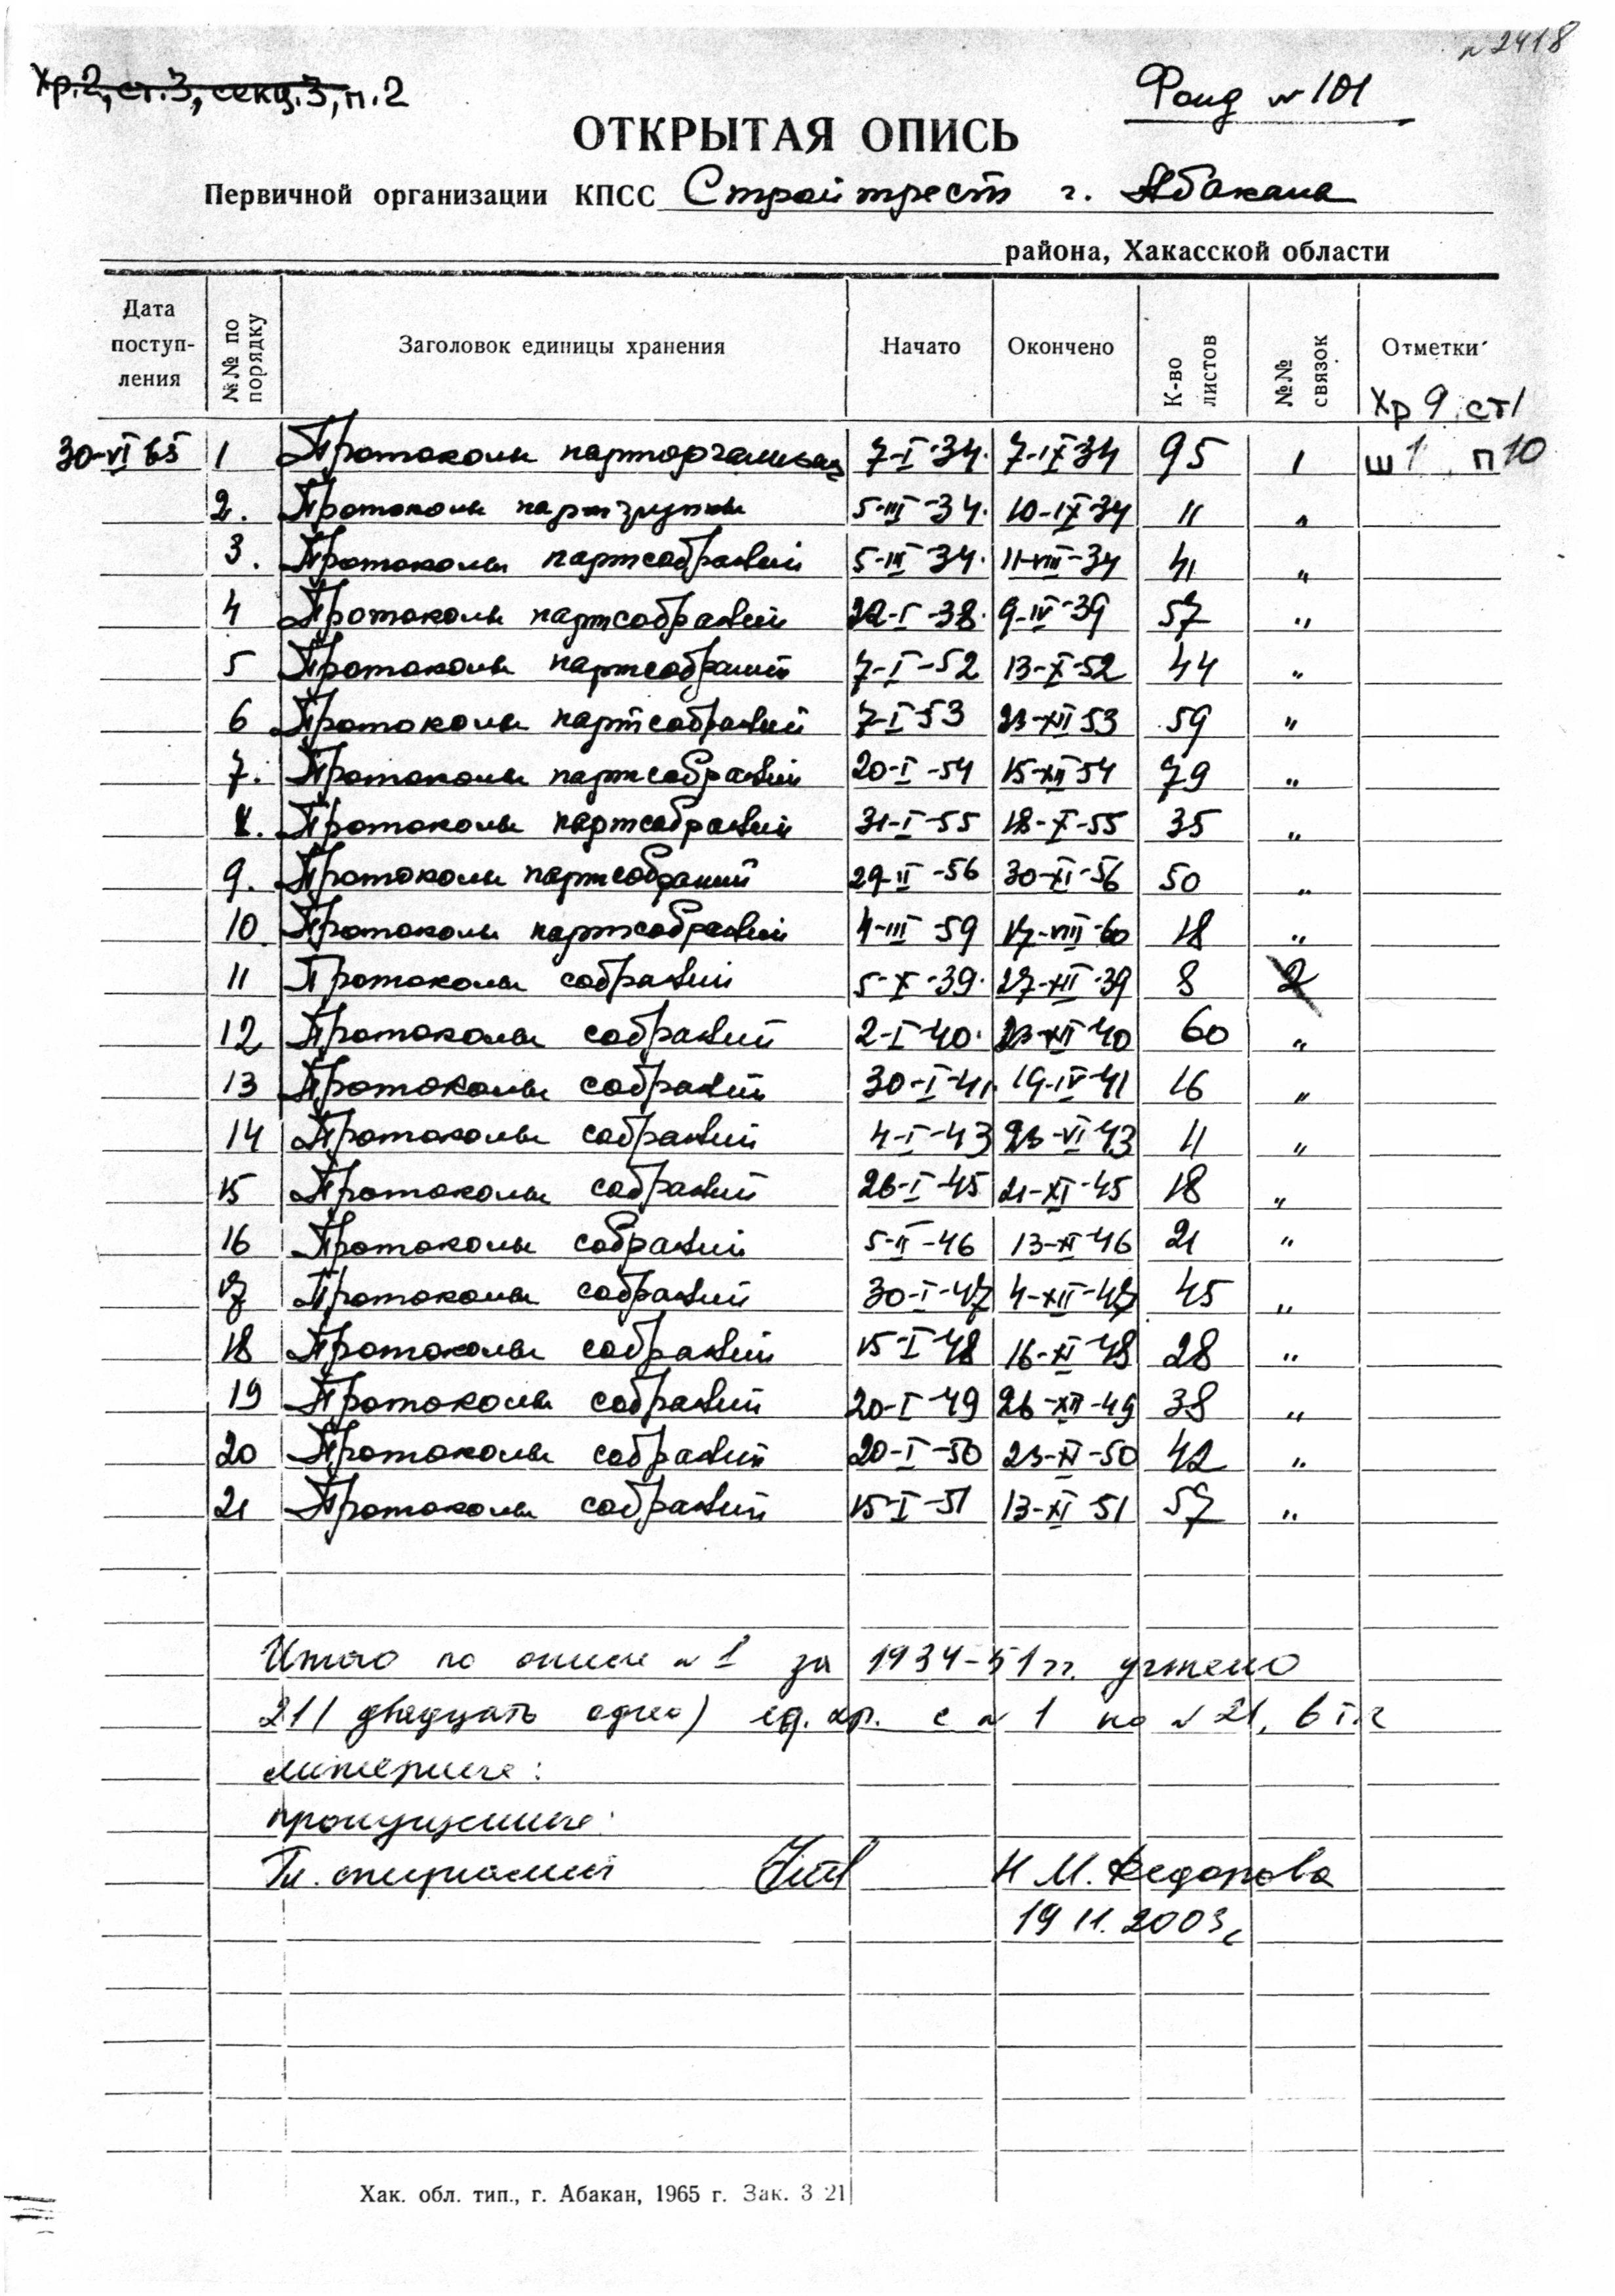 n 2418
Хр.2, ст.3, секц.3, п.2
Фонд №101
ОТКРЫТАЯ ОПИСЬ
Первичной организации КПСС Стройтрест г. Абакана
района, Хакасской области
Дата поступ-ления №№ по порядку Заголовок единицы хранения Начато Окончено К-во листов №№ связок Отметки
Хр 9 ст1
30-VI 65 1 Протоколы парторганизац 7-I-34. 7-IX34 95 1 ш 1 п10
2. Протоколы партгруппы 5-III-34. 10-IX34 11 "
3. Протоколы партсобраний 5-III-34. 11-VIII-34 41 "
4 Протоколы партсобраний 22-I-38. 9-IV-39 57 "
5 Протоколы партсобраний 7-I-52 13-X-52 44 "
6 Протоколы партсобраний 7-I-53 23-XII 53 59 "
7. Протоколы партсобраний 20-I-54 15-XII 54 79 "
8. Протоколы партсобраний 31-I-55 18-X-55 35 "
9. Протоколы партсобраний 29-II-56 30-XI-56 50 "
10 Протоколы партсобраний 4-III-59 17-VIII-60 18 "
11 Протоколы собраний 5-X-39. 27-XII-39 8 2
12 Протоколы собраний 2-I-40. 23-XII 40 60 "
13 Протоколы собраний 30-I-41. 19-IV-41 16 "
14 Протоколы собраний 4-I-43 23-VI-43 11 "
15 Протоколы собраний 26-I-45 21-XI-45 18 "
16 Протоколы собраний 5-II-46 13-XI-46 21 "
17 Протоколы собраний 30-I-47 4-XII-47 45 "
18 Протоколы собраний 15-I-48 16-XI-48 28 "
19 Протоколы собраний 20-I-49 26-XII-49 38 "
20 Протоколы собраний 20-I-50 23-XI-50 42 "
21 Протоколы собраний 15-I-51 13-XI-51 57 "
Итого по описи №1 за 1934-51 гг. учтено
21 (двадцать одно) ед. хр. с №1 по №21, в т.ч
литерные:
пропущенные:
Гл. специалист Н М. Федорова
19 11. 2003г
Хак. обл. тип., г. Абакан, 1965 г. Зак. 3 21